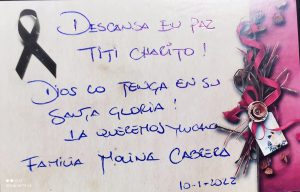 DESCANSA EN PAZ
TITI CHARITO!
DIOS LO TENGA EN SU
SANTA GLORIA!
LA QUEREMOS MUCHO
FAMILIA MOLINA CABRERA
10-1-2022